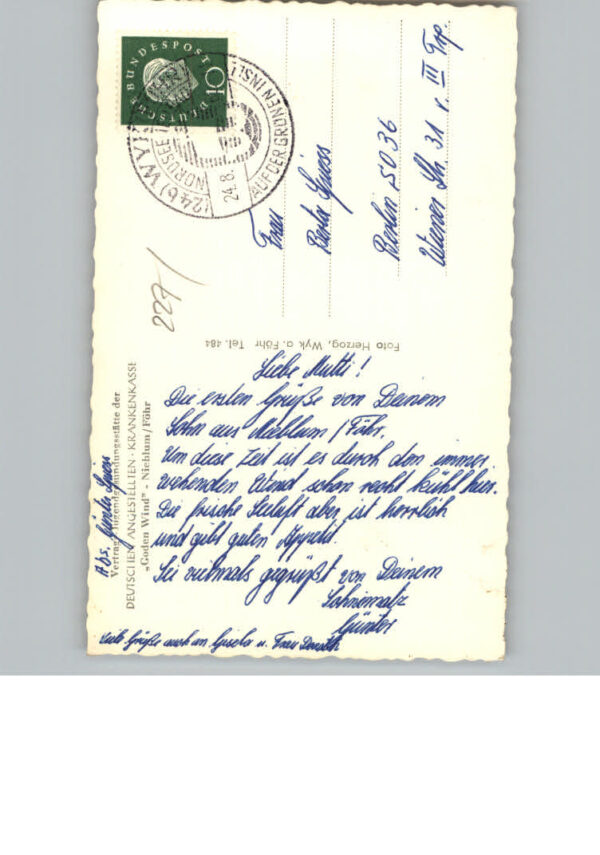 DEUTSCHE BUNDESPOST
10
(24b) WYK
NORDSEE
24.8.
AUF DER GRÜNEN INSEL
Frau
Berta
Berlin SO 36
Wiener Str. 31 v. III Trp.
227/
Foto Herzog, Wyk a. Föhr Tel. 484
der
DEUTSCHEN ANGESTELLTEN-KRANKENKASSE
„Goden Wind" - Nieblum/Föhr
Abs. Günter
Liebe Mutti!
Die ersten Grüße von Deinem
Sohn aus Nieblum / Föhr.
Um diese Zeit ist es durch den immer
wehenden Wind schon recht kühl hier.
Die frische Seeluft aber ist herrlich
und gibt guten Appetit.
Sei vielmals gegrüßt von Deinem
Sohnematz
Günter
Viele Grüße auch an Gisela u. Frau